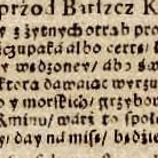 przod Barszcz K
y z żytnych otrąb pro
szczupaka albo certę/
y wędzoney/ abo świ
ktora dawaiąc wyrzu
y morskich/ grzybow
Kminu/ warz to społe
/ day na misę/ będzie